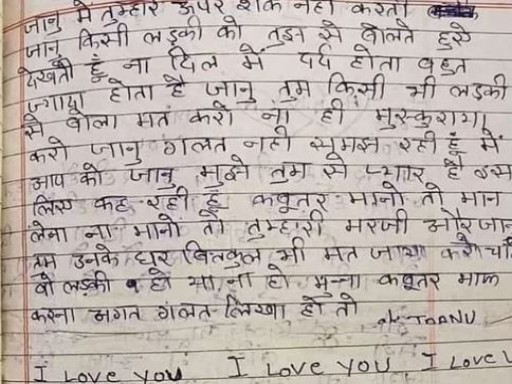 जानु मैं तुम्हारे ऊपर शक नहीं करती
जानु किसी लड़की को तुझ से बोलते हुऐ
देखती हूँ ना दिल में दर्द होता बहुत
ज्यादा होता है जानु तुम किसी भी लड़की
से बोला मत करो ना ही मुस्कुराया
करो जानु गलत नही समझ रही हूँ मैं
आप को जानु मुझे तुम से प्यार है इस
लिए कह रही हूँ कबूतर मानो तो मान
लेना ना मानो तो तुम्हारी मरजी और जानु
तुम उनके घर बिलकुल भी मत जाया करो चाहे
वो लड़की हो या ना हो मुन्ना कबूतर माफ
करना अगत गलत लिखा हो तो
I Love you I Love you I Love